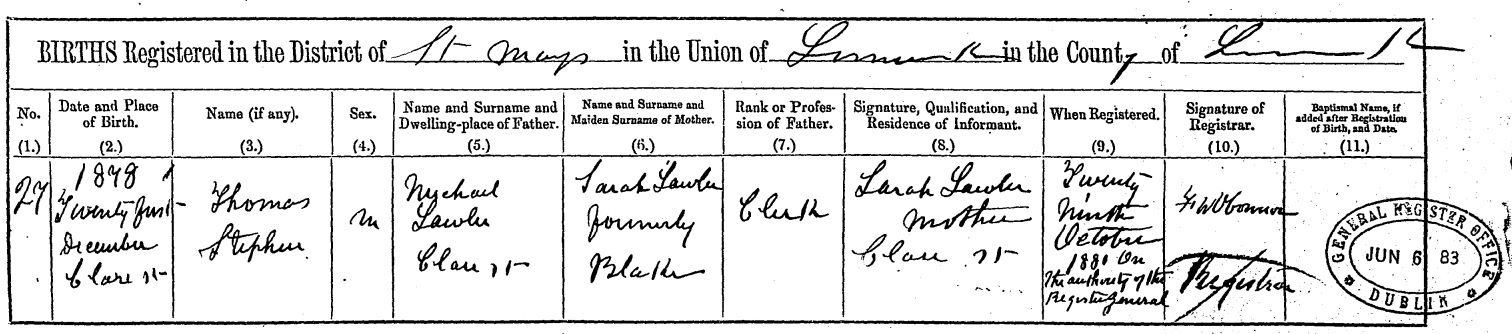 BIRTHS Registered in the District of St Marys in the Union of Limerick in the County of Limerick
No. Date and Place of Birth. Name (if any). Sex. Name and Surname and Dwelling-place of Father. Name and Surname and Maiden Surname of Mother. Rank or Profession of Father. Signature, Qualification, and Residence of Informant. When Registered. Signature of Registrar. Baptismal Name, if added after Registration of Birth, and Date.
(1.) (2.) (3.) (4.) (5.) (6.) (7.) (8.) (9.) (10.) (11.)
27
1878
Twenty first
December
Clare St
Thomas
Stephen
M
Michael
Lawler
Clare St
Sarah Lawler
formerly
Blake
Clerk
Sarah Lawler
Mother
Clare St
Twenty
Ninth
October
1880 On
the authority of the
Register General
F W O'Connor
Registrar
GENERAL REGISTER OFFICE
JUN 6 83
DUBLIN